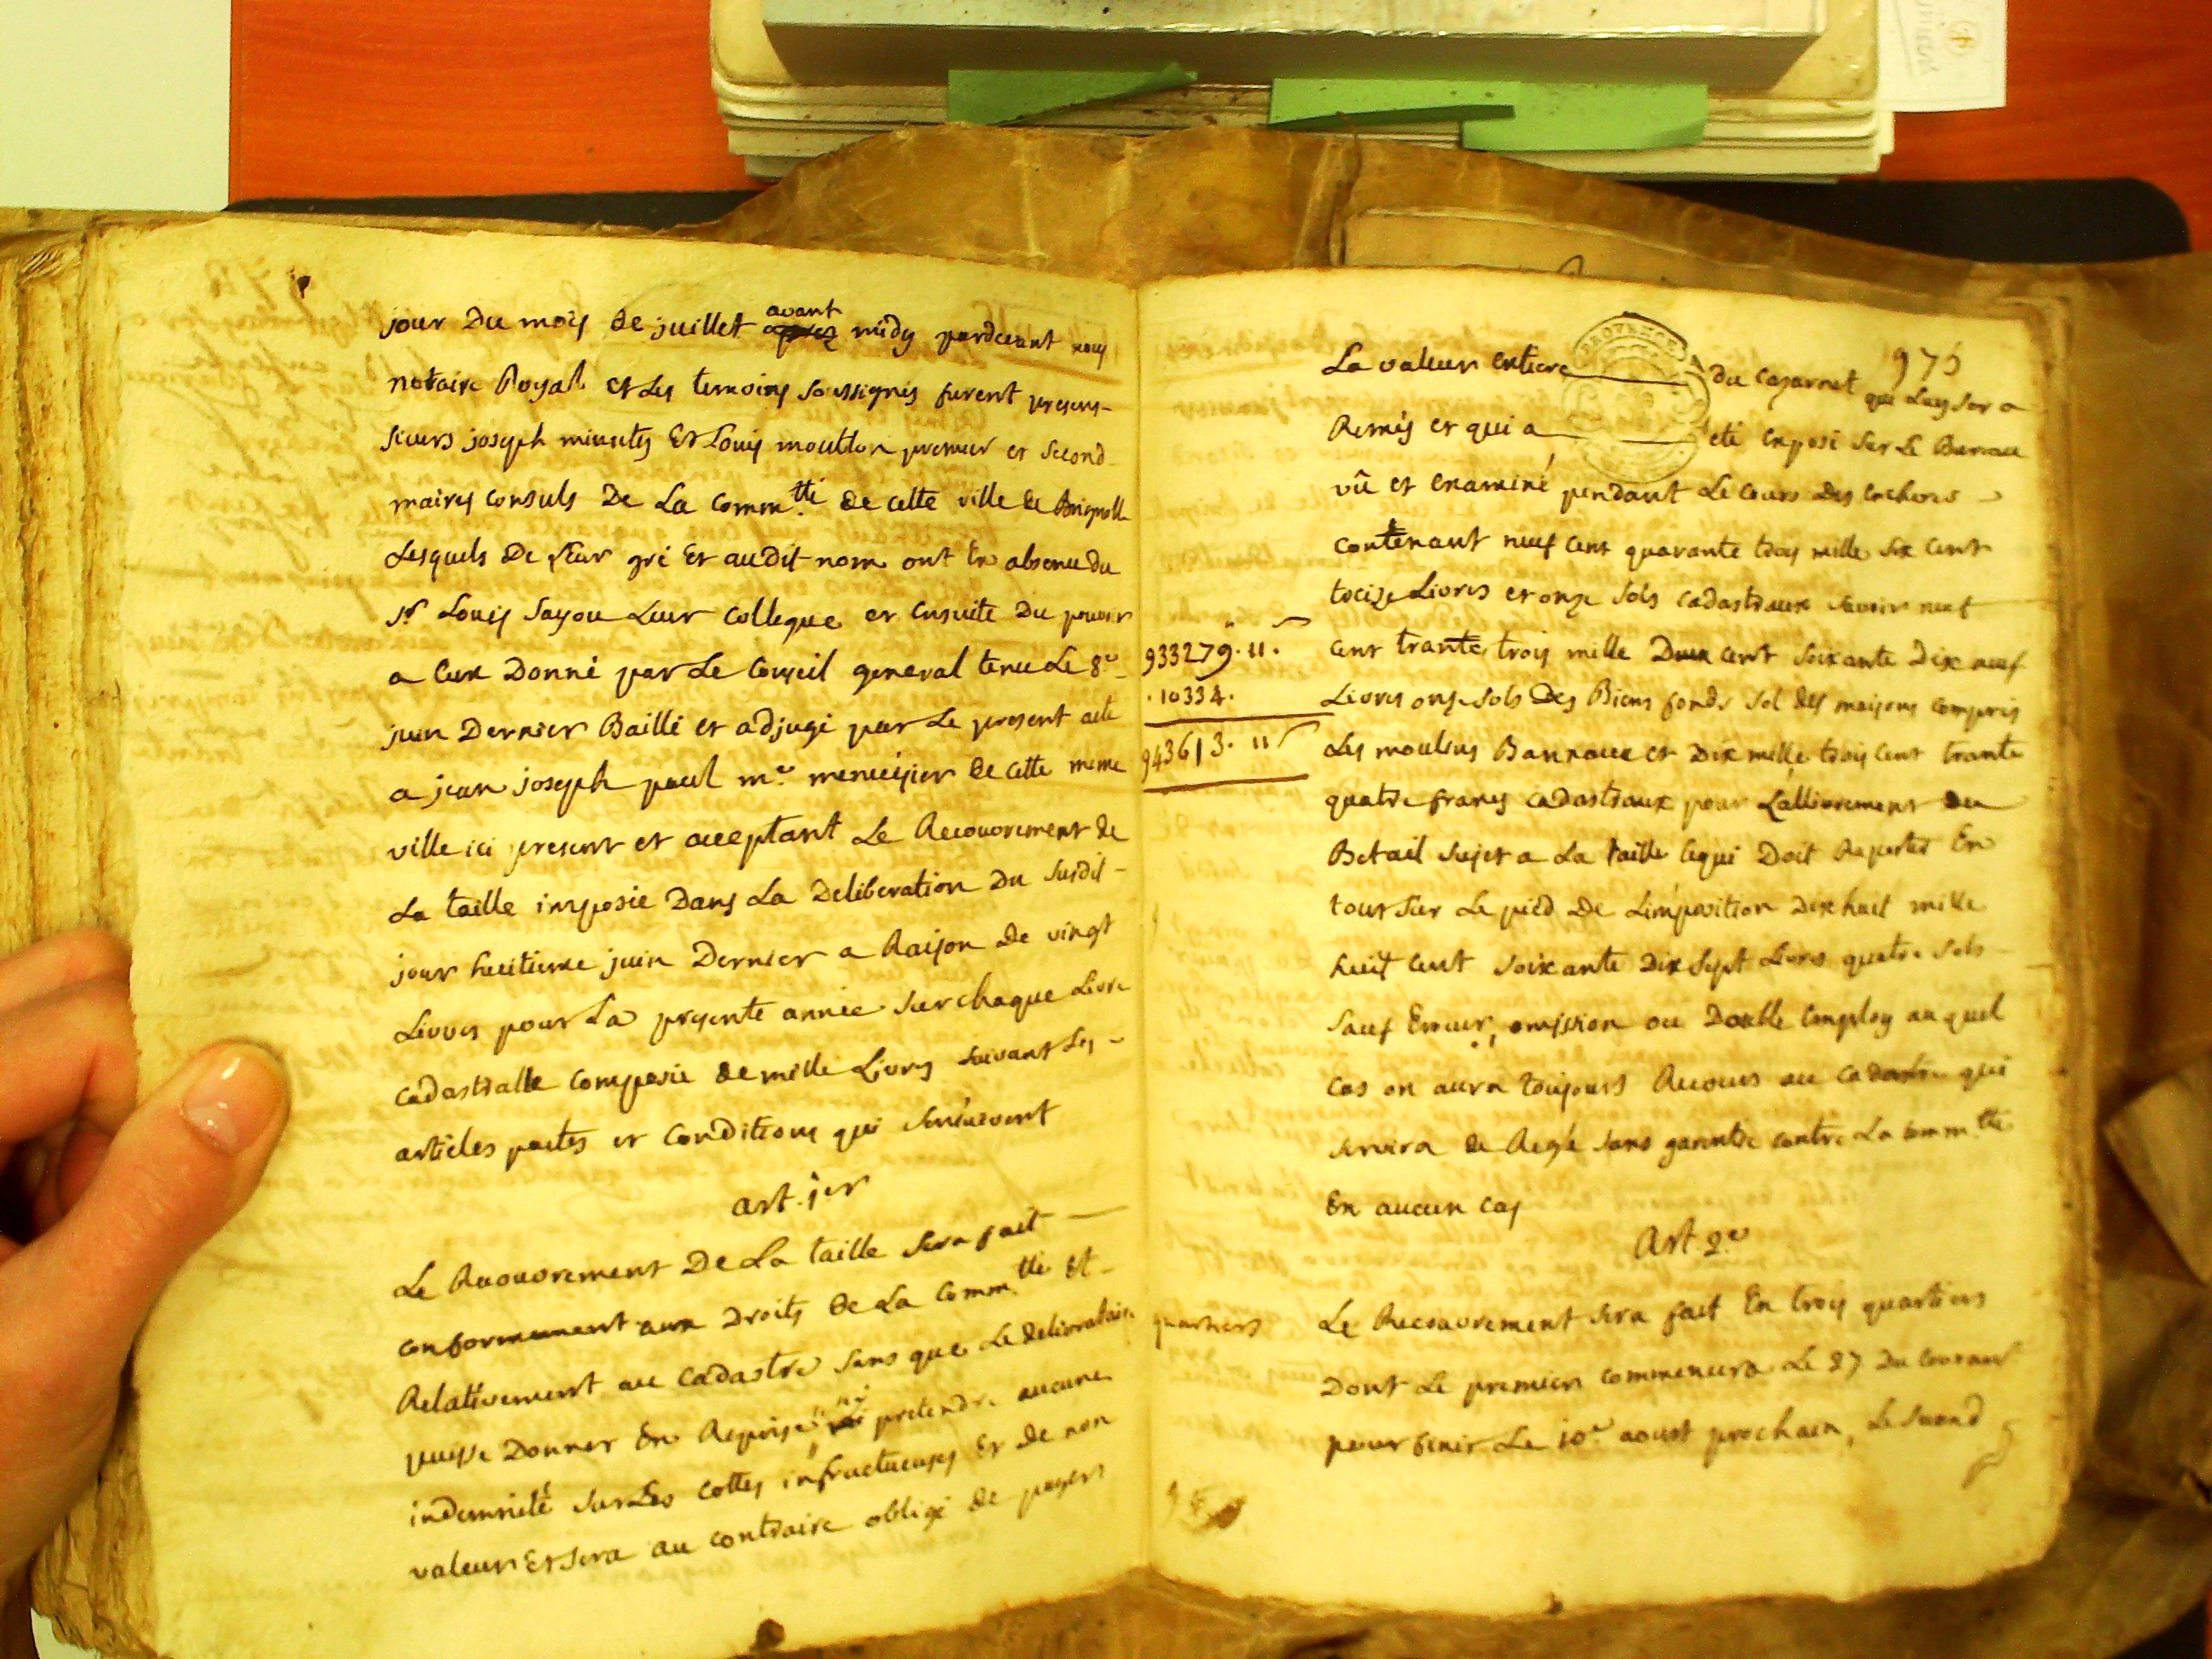 jour Du mois De juillet avant midy pardevant nous
notaire Royal et Les temoins soussignés furent presens
sieurs joseph minuty Et Louis moutton premier et second
maires Consuls De La Comm.tté de cette ville de Brignolle
Lesquels De Leur gré Et audit nom ont En absence du
sr Louis sayou Leur Collegue et Ensuite Du pouvoir
a Eux Donné par Le Conseil general tenu Le 8e
juin Dernier Baillé et adjugé par Le present acte
a jean joseph paul me menuisier De cette meme
ville ici present et acceptant Le Recouvrement de
La taille imposée Dans La Deliberation Du susdit
jour huitieme juin Dernier a Raison De vingt
Livres pour La presente année sur chaque Livre
cadastralle composée de mille Livres suivant Les
articles pactes et Conditions qui s'ensuivent
art. jer
Le Recouvrement De La taille sera fait
conformement aux Droits De La Comm.tté Et
Relativement au cadastre sans que Le delivrataire
puisse Donner En Reprise ni pretendre aucune
indemnité sur Les cottes infructueuses Et de non
valeur Et sera au contraire obligé de payer
975
La valeur entiere du cazarnet qui Luy sera
PROVENCE
Remis et qui a eté Exposé sur Le Bureau
vû et examiné pendant Le cours Des encheres
contenant neuf cent quarante trois mille six cent
treize Livres et onze sols cadastraux savoir neuf
933279. 11.
cent trante trois mille Deux cent soixante Dix neuf
. 10334.
Livres onze sols Des Biens fonds sol des maisons compris
943613. 11
Les moulins Bannaux et Dix mille trois cent trante
quatre francs cadastraux pour L'allivrement du
Betail sujet a La taille cequi Doit Raporter En
tout sur Le pied De L'imposition Dix huit mille
huit cent soixante Dix sept Livres quatre sols
sauf Erreur, omission ou Double Employ auquel
cas on aura toujours Recours au cadastre qui
servira de Regle sans garentie contre La Comm.tté
En aucun cas
Art 2e
quartiers
Le Recouvrement sera fait En trois quartiers
Dont Le premier commencera Le 27 Du Courant
pour finir Le 10e aoust prochain, Le second